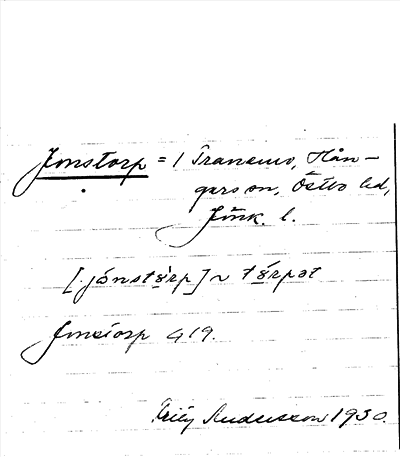 Jonstorp = 1 Tranemo, Hån-
gers sn, Östbo hd,
Jönk. l.
[jónstὸrp] ~ tǿrpət
Jonstorp G 19.
Andersson 1930.